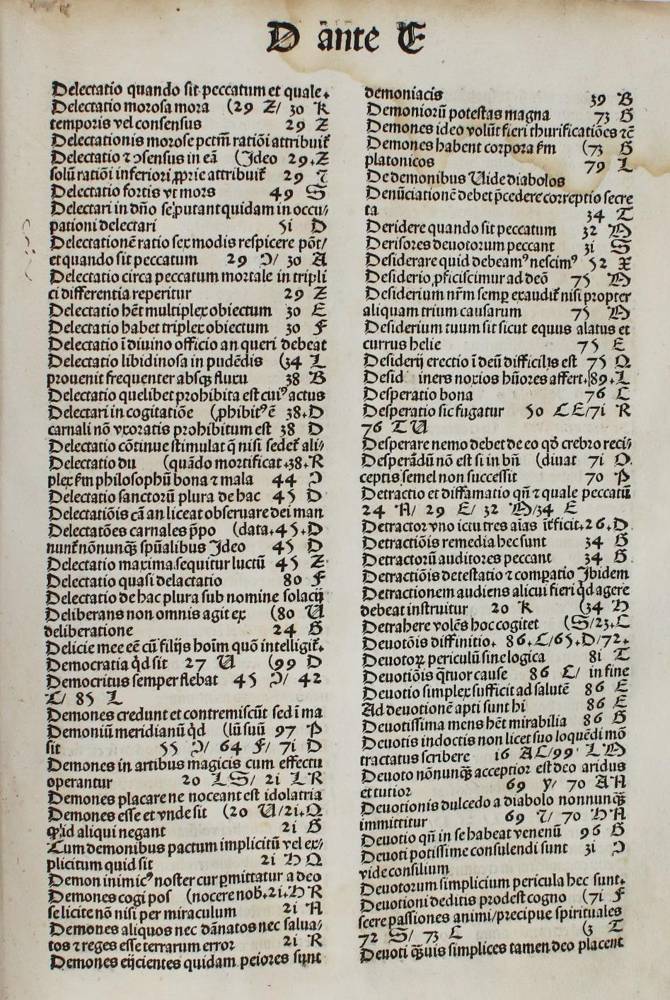 D ante E
Delectatio quando sit peccatum et quale.
Delectatio morosa mora (29 Z/ 30 K
temporis vel consensus 29 Z
Delectationis morose pctm̄ ratiōi attribuit̄
Delectatio ⁊ ɔsensus in eā (Ideo 29.Z
solū ratiōi inferiori ꝓprie attribuit̄ 29
Delectatio fortis vt mors 49 S
Delectari in dn̄o se putant quidam in occu/
pationi delectari 5i D
Delectationē ratio sex modis respicere pōt/
et quando sit peccatum 29 / 30 A
Delectatio circa peccatum mortale in tripli
ci differentia reperitur 29 Z
Delectatio hēt multiplex obiectum 30 E
Delectatio habet triplex obiectum 30 F
Delectatio ī divino officio an queri debeat
Delectatio libidinosa in pudēdis (34 L
prouenit frequenter absqꝫ fluxu 38 B
Delectatio quelibet prohibita est cuiꝰ actus
Delectari in cogitatiōe (ꝓhibitꝰ ē 38.D
carnali nō vxoratis ꝓhibitum est 38 D
Delectatio cōtinue stimulat q̄ nisi sedet̄ ali/
Delectatio du (quādo mortificat.38.R
plex ẜm philosophū bona ⁊ mala 44
Delectatio sanctorū plura de hac 45 D
Delectatiōis cā an liceat obseruare dei man
Delectatōes carnales ꝓpo (data.45.D
nunt̄ nōnunqꝫ spūalibus Ideo 45 D
Delectatio maxima sequitur luctū 45 Z
Delectatio quasi delactatio 80 F
Delectatio de hac plura sub nomine solacij
Deliberans non omnis agit ex (80 U
deliberatione 24 G
Delicie mee eē cū filijs hoīm quō intelligit̄.
Democratia qͥd sit 27 U (99 D
Democritus semper flebat 45 / 42
/ 85 L
Demones credunt et contremiscūt sed ī ma
Demoniū meridianū qͥd (lū suū 97 P
sit 55 / 64 F/ 7i D
Demones in artibus magicis cum effectu
operantur 20 L S/ 2i L R
Demones placare ne noceant est idolatria
Demones esse et vnde sit (20 U/2i.Q
qͥd aliqui negant 2i G
Cum demonibus pactum implicitū vel ex/
plicitum quid sit 2i H Q
Demon inimicꝰ noster cur ꝑmittatur a deo
Demones cogi pos (nocere nob̄.2i.H R
se licite nō nisi per miraculum 2i A
Demones aliquos nec dānatos nec salua/
tos ⁊ reges esse terrarum error 2i R
Demones eijcientes quidam peiores sunt
demoniacis 39 B
Demoniorū potestas magna 73 G
Demones ideo volūt fieri thurificatiōes ⁊c̄
Demones habent corpora ẜm (73 G
platonicos 79 L
De demonibus Uide diabolos
Denūciationē debet p̄cedere correptio secre
ta 34 T
Deridere quando sit peccatum 32 M
Derisores deuotorum peccant 3i S
Desiderare quid debeamꝰ nescimꝰ 52 X
Desiderio ꝓficiscimur ad deū 75 M
Desiderium nr̄m semp exaudit̄ nisi propter
aliquam trium causarum 75 M
Desiderium tuum sit sicut equus alatus et
currus helie 75 E
Desiderij erectio ī deū difficilis est 75 Q
Desid iners noxios hūores affert.89.L
Desperatio bona 76 C
Desperatio sic fugatur 50 C E/7i R
76 T U
Desperare nemo debet de eo qḋ crebro reci/
Desperādū nō est si in bn̄ (diuat 7i O.
ceptis semel non successit 70 P
Detractio et diffamatio qn̄ ⁊ quale peccatū
24 A/ 29 E/ 32 M/34 E
Detractor vno ictu tres aīas īt̄ficit.26.D
Detractiōis remedia hec sunt 34 G
Detractorū auditores peccant 34 G
Detractiōis detestatio ⁊ comꝑatio Ibidem
Detractionem audiens alicui fieri qͥd agere
debeat instruitur 20 K (34 H
Detrahere volēs hoc cogitet (S/23.C
Deuotōis diffinitio. 86.C/65.D/72.
Deuotoꝝ periculū sine logica 8i T
Deuotiōis q̄tuor cause 86 C/ in fine
Deuotio simplex sufficit ad salutē 86 E
Ad deuotionē apti sunt hi 86 E
Deuotissima mens hēt mirabilia 86 G
Deuotis indoctis non licet suo loquēdi mō
tractatus scribere 16 A C/99 L M
Deuoto nōnunqꝫ acceptior est deo aridus
et tutior 69 Y/ 70 A N
Deuotionis dulcedo a diabolo nonnunqꝫ
immittitur 69 / 70 H A
Deuotio qn̄ in se habeat venenū 96 G
Deuoti potissime consulendi sunt 3i
vide consilium
Deuotorum simplicium pericula hec sunt.
Deuotioni deditis prodest cogno (7i F
scere passiones animi/precipue spirituales
72 S/ 73 C (3 T
Deuoti qͣuis simplices tamen deo placent